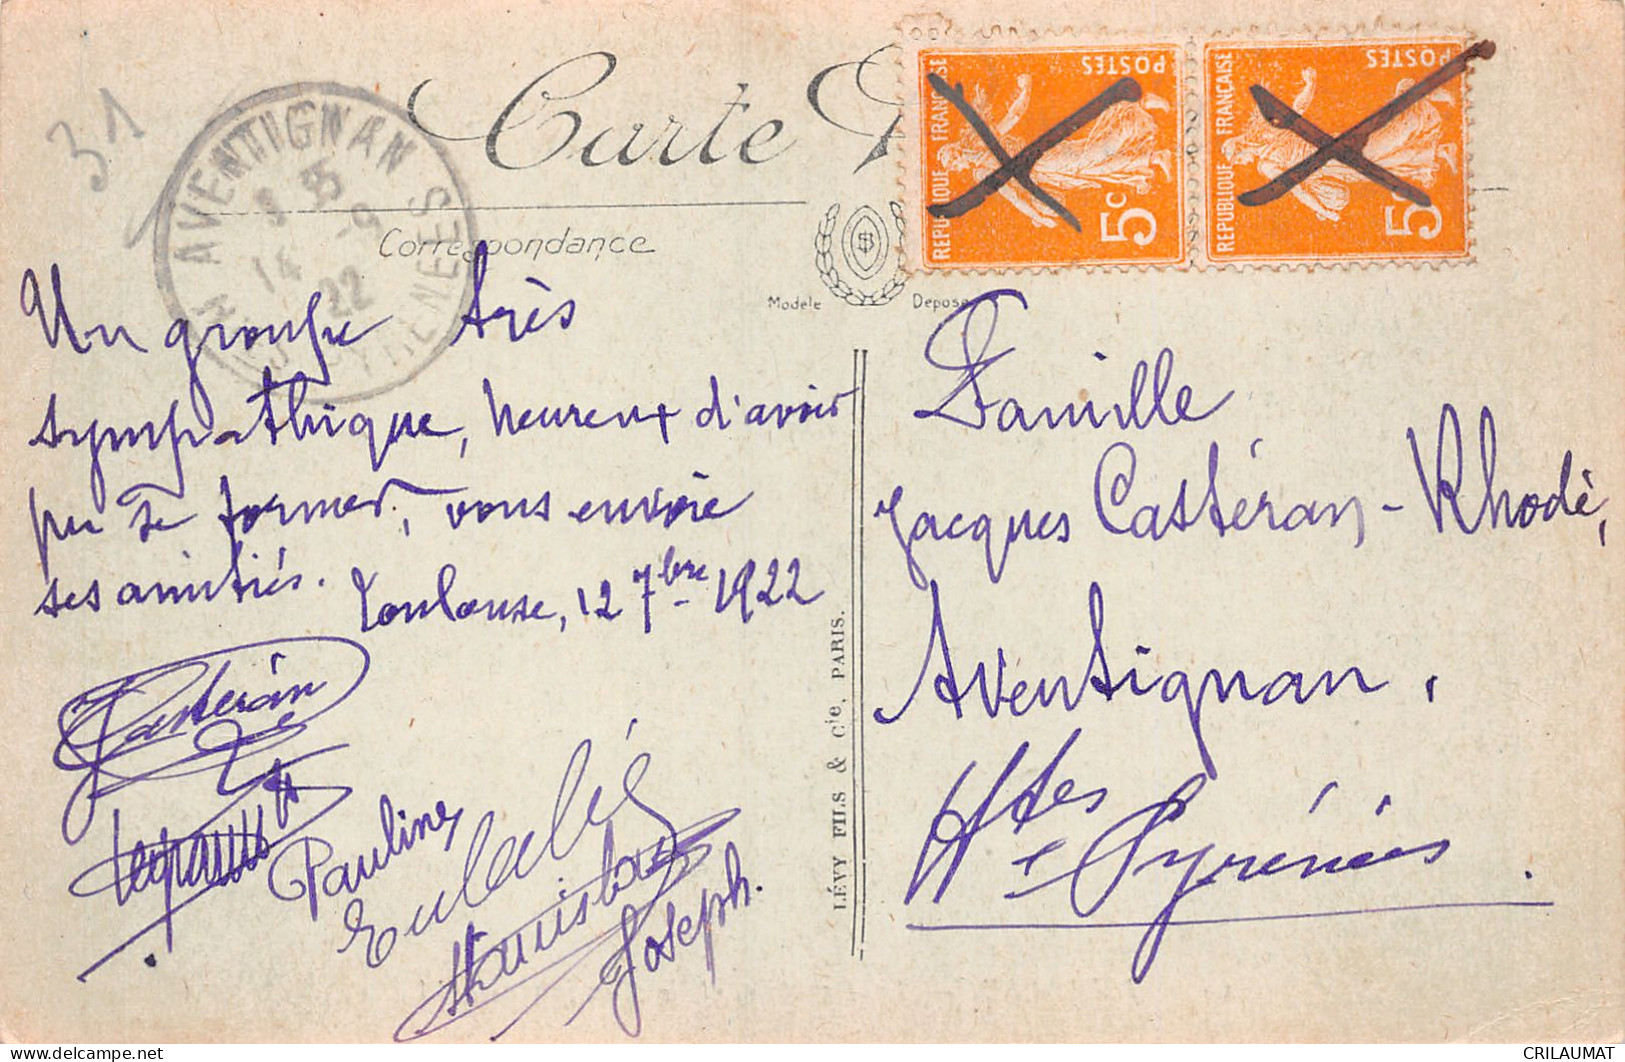 31
Carte
AVENTIGNAN
14 -9
22
Correspondance
Modèle Déposé
RÉPUBLIQUE FRANÇAISE
POSTES
5c
RÉPUBLIQUE FRANÇAISE
POSTES
5c
Un groupe très
sympathique, heureux d'avoir
pu se former, vous envoie
ses amitiés.
Toulouse, 12 7bre 1922
Castéran
Pauline
Eulalie
Stanislas
Joseph.
LÉVY FILS & Cie, PARIS.
Famille
Jacques Castéran-Rhodè,
Aventignan.
Htes Pyrénées.
CRILAUMAT